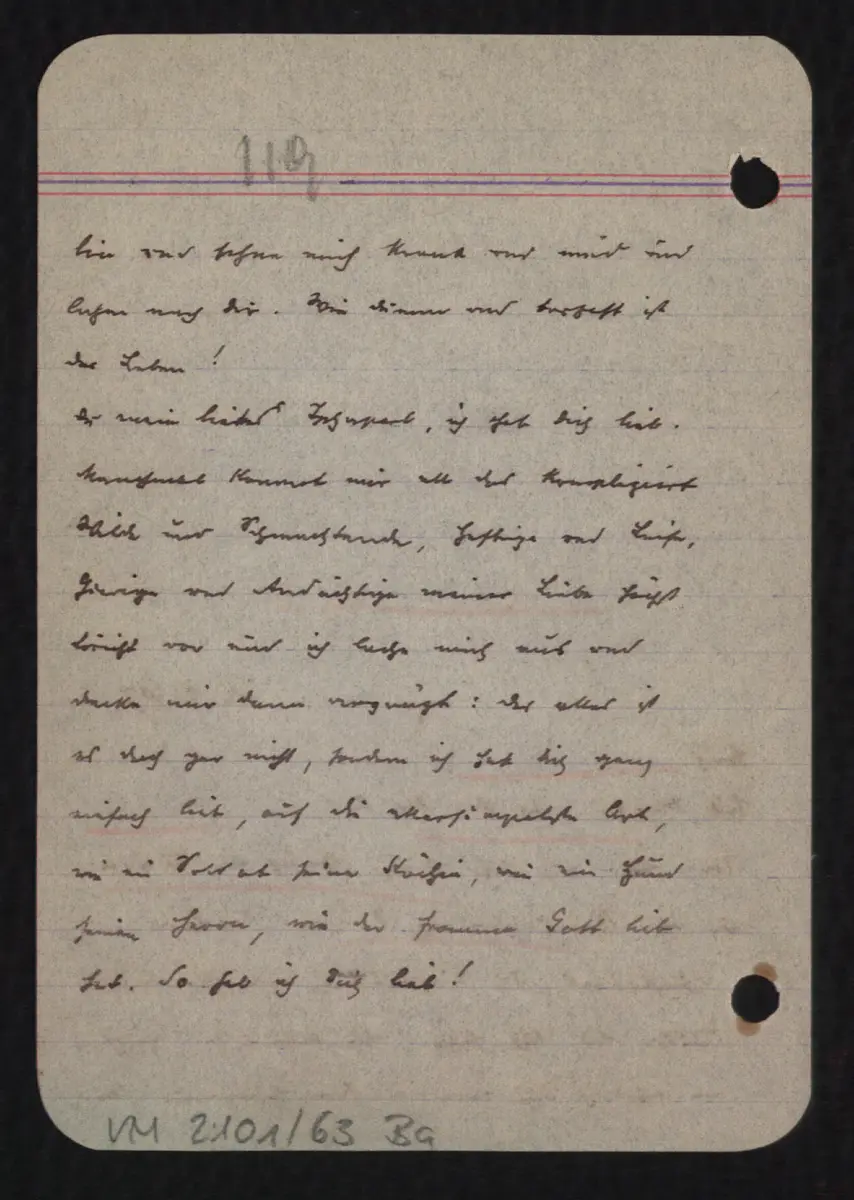 119
bin und sehne mich krank und müd und
lahm nach dir. Wie dumm und boshaft ist
das Leben!
Du mein liebes, ich hab dich lieb.
Manchmal kommt mir all das Kompliziert
Wilde und Schmachtende, Heftige und Leise,
Gierige und Andächtige meiner Liebe höchst
töricht vor und ich lache mich aus und
denke mir dann vergnügt: das alles ist
es doch gar nicht, sondern ich hab dich ganz
einfach lieb, auf die allersimpelste Art,
wie ein Soldat seine Köchin, wie ein Hund
seinen Herrn, wie der fromme Gott lieb
hat. So hab ich dich lieb!
VM 2101/63 Ba